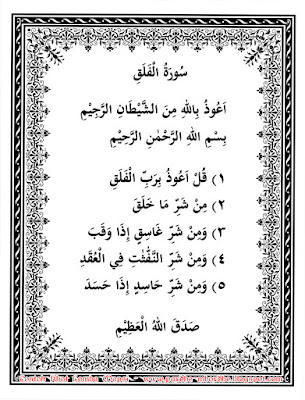 سُورَةُ الْفَلَقِ
اَعُوذُ بِاللهِ مِنَ الشَّيْطَانِ الرَّجِيْمِ
بِسْمِ اللهِ الرَّحْمٰنِ الرَّحِيْمِ
١) قُلْ اَعُوذُ بِرَبِّ الْفَلَقِ
٢) مِنْ شَرِّ مَا خَلَقَ
٣) وَمِنْ شَرِّ غَاسِقٍ إِذَا وَقَبَ
٤) وَمِنْ شَرِّ النَّفّٰثٰتِ فِي الْعُقَدِ
٥) وَمِنْ شَرِّ حَاسِدٍ إِذَا حَسَدَ
صَدَقَ اللهُ الْعَظِيْمُ